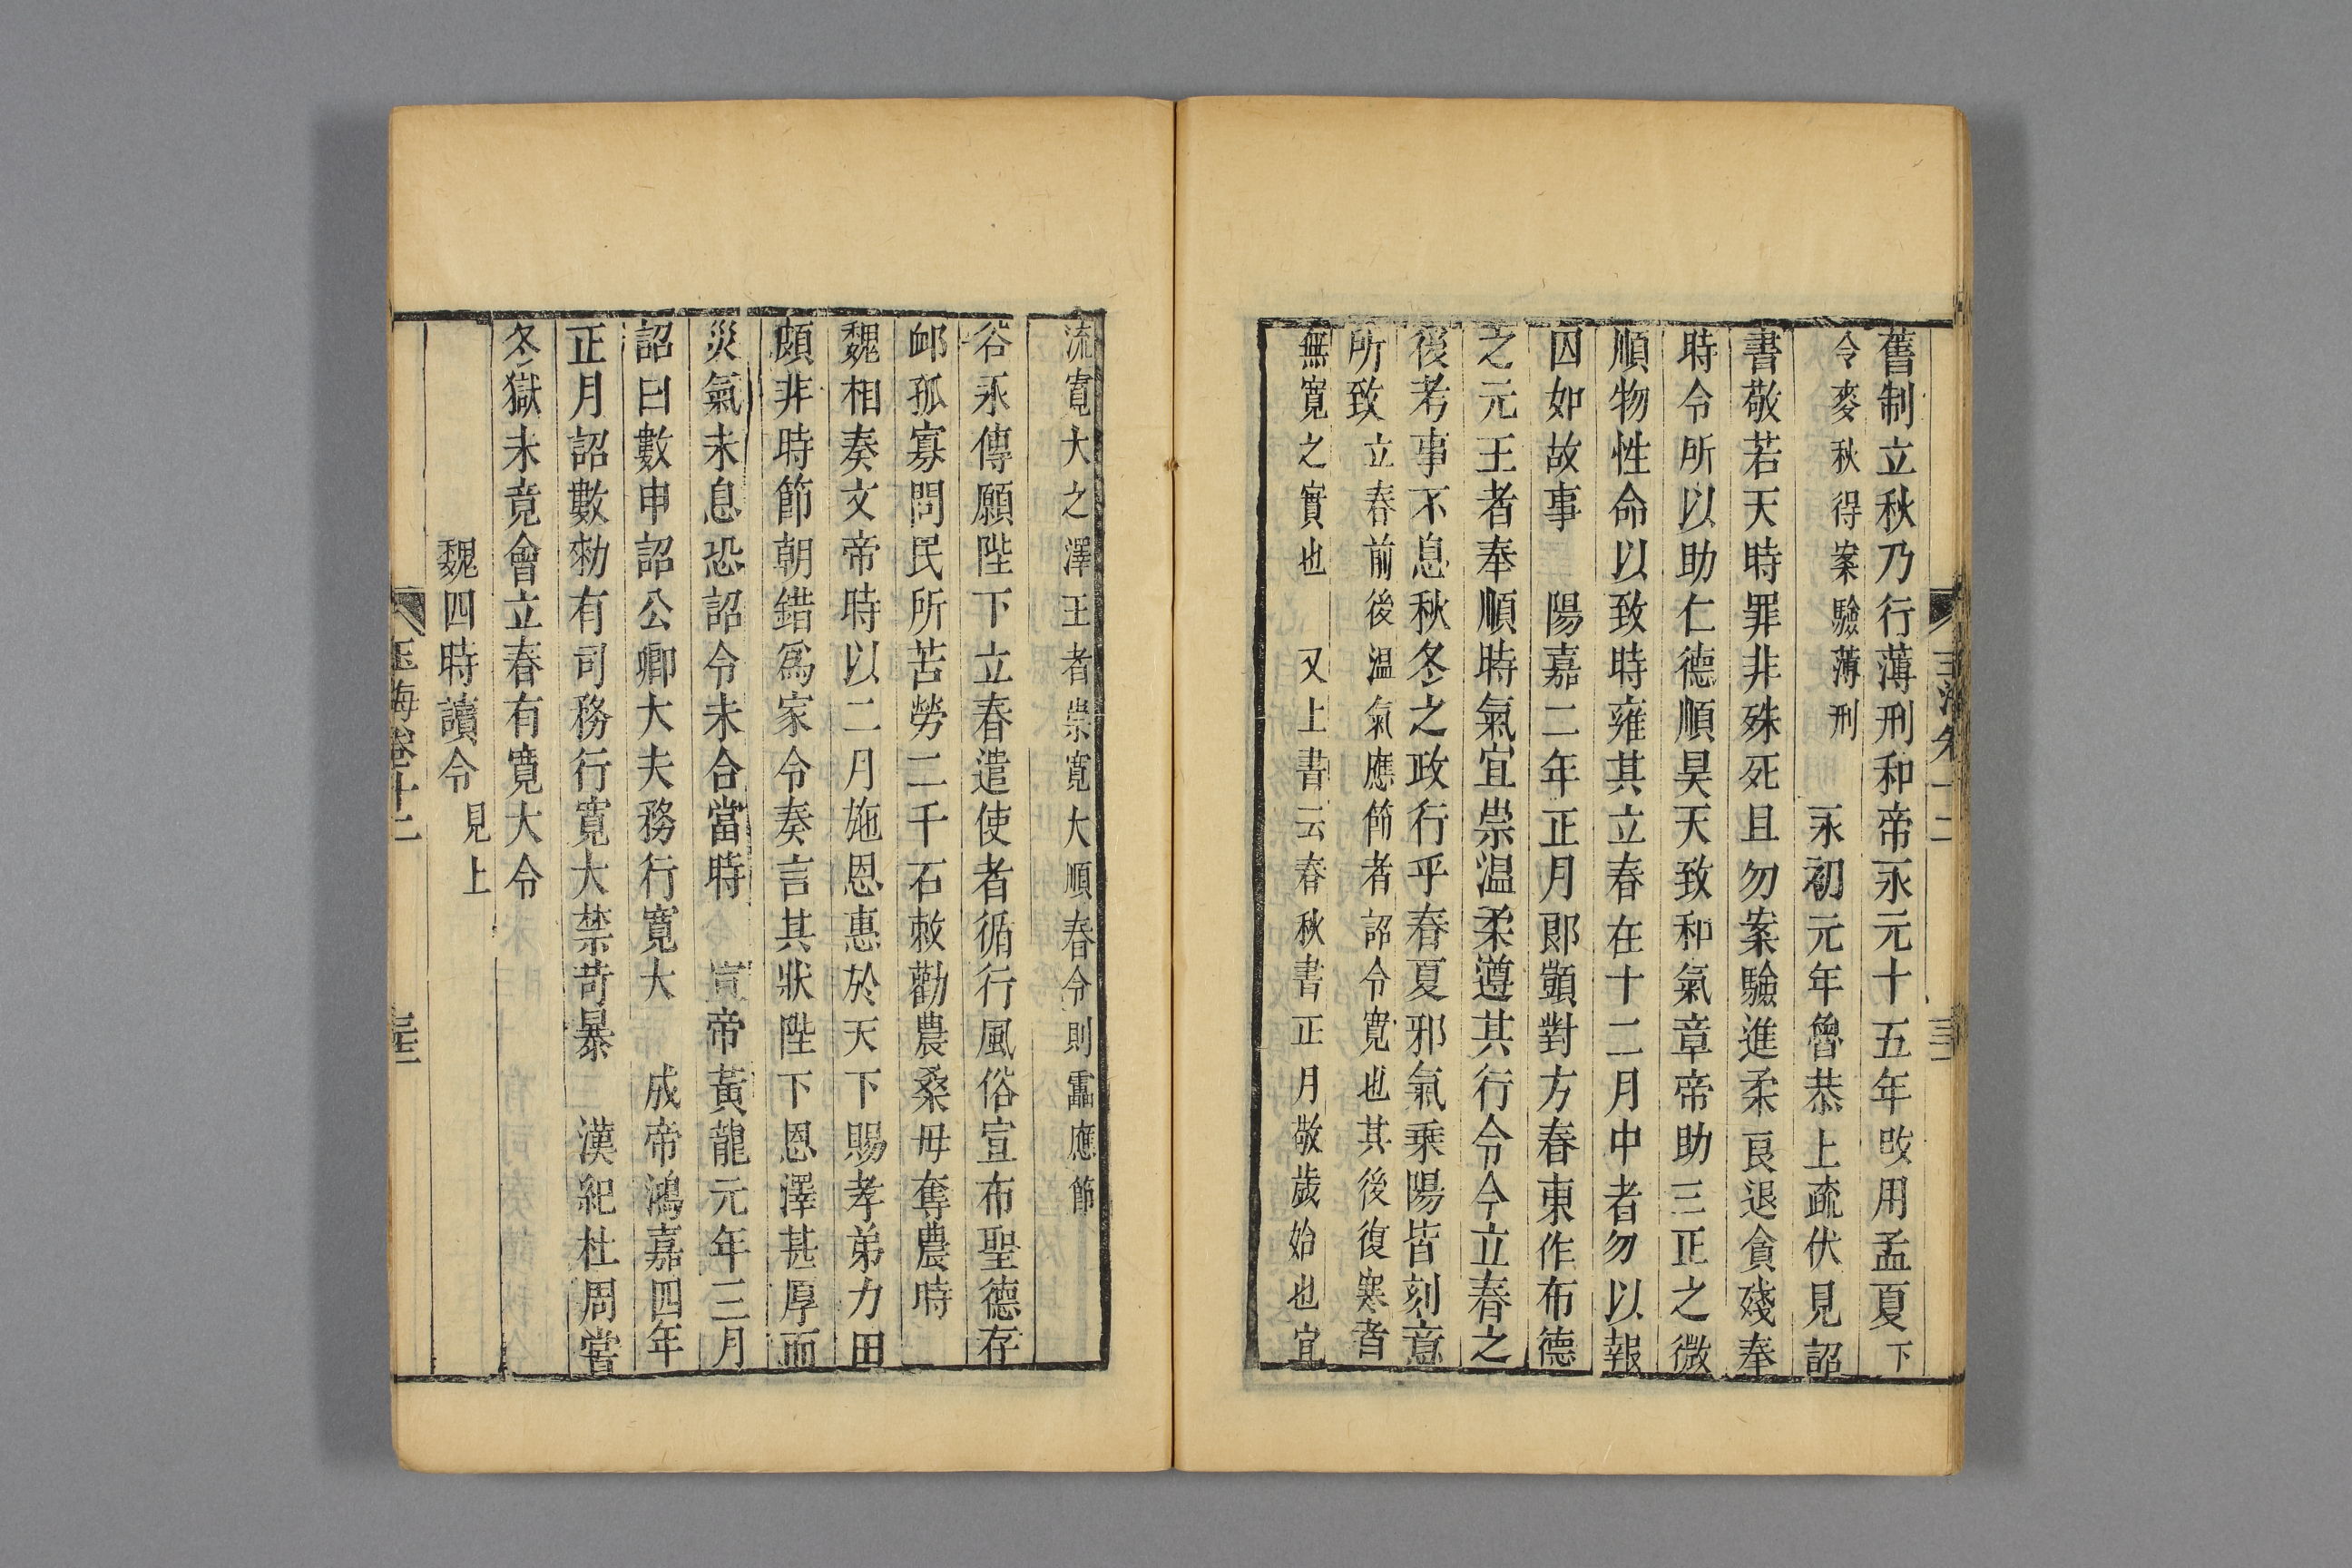 舊制立秋乃行薄刑和帝永元十五年改用孟夏下
令麥秋得案驗薄刑 永初元年魯恭上疏伏見詔
書敬若天時罪非殊死且勿案驗進柔良退貪殘奉
時令所以助仁德順昊天致和氣章帝助三正之微
順物性命以致時雍其立春在十二月中者勿以報
囚如故事 陽嘉二年正月郎顗對方春東作布德
之元王者奉順時氣宜祟溫柔遵其行令今立春之
後考事不息秋冬之政行乎春夏邪氣乗陽皆刻意
所致立春前後温氣應節者詔令寬也其後復寒者
無寬之實也 又上書云春秋書正月敬歲始也宜
流寬大之澤王者崇寬大順春令則雷應節
谷永傳願陛下立春遣使者循行風俗宣布聖德存
衈孤寡問民所苦勞二千石敕勸農桑毋奪農時
魏相奏文帝時以二月施恩惠於天下賜孝弟力田
頗非時節朝錯爲家令奏言其狀陛下恩澤甚厚而
災氣未息恐詔令未合當時 宣帝黃龍元年三月
詔曰數申詔公卿大夫務行寬大 成帝鴻嘉四年
正月詔數勑有司務行寬大禁苛暴 漢紀杜周嘗
冬獄未竟會立春有寬大令
魏四時讀令見上
玉海卷十二